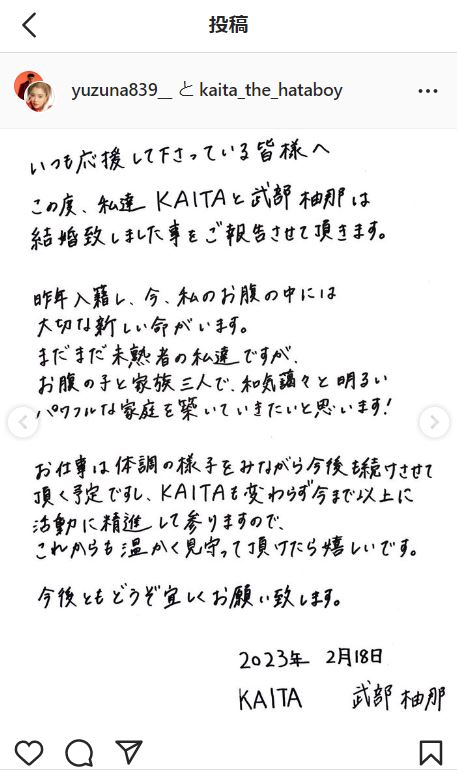 投稿
yuzuna839__ と kaita_the_hataboy
いつも応援して下さっている皆様へ
この度、私達 KAITAと武部 柚那は
結婚致しました事をご報告させて頂きます。
昨年入籍し、今、私のお腹の中には
大切な新しい命がいます。
まだまだ未熟者の私達ですが、
お腹の子と家族三人で、和気藹々と明るい
パワフルな家庭を築いていきたいと思います!
お仕事は体調の様子をみながら今後も続けさせて
頂く予定ですし、KAITAも変わらず今まで以上に
活動に精進して参りますので、
これからも温かく見守って頂けたら嬉しいです。
今後ともどうぞ宜しくお願い致します。
2023年 2月18日
KAITA 武部 柚那